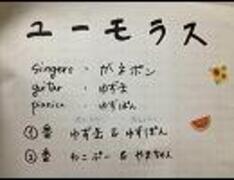 ユーモラス
singers・がネポン
guitar・ゆず金
pianica・ゆずぽん
①番 ゆず金 & ゆずぽん
②番 ねこぷー & やまちゃん